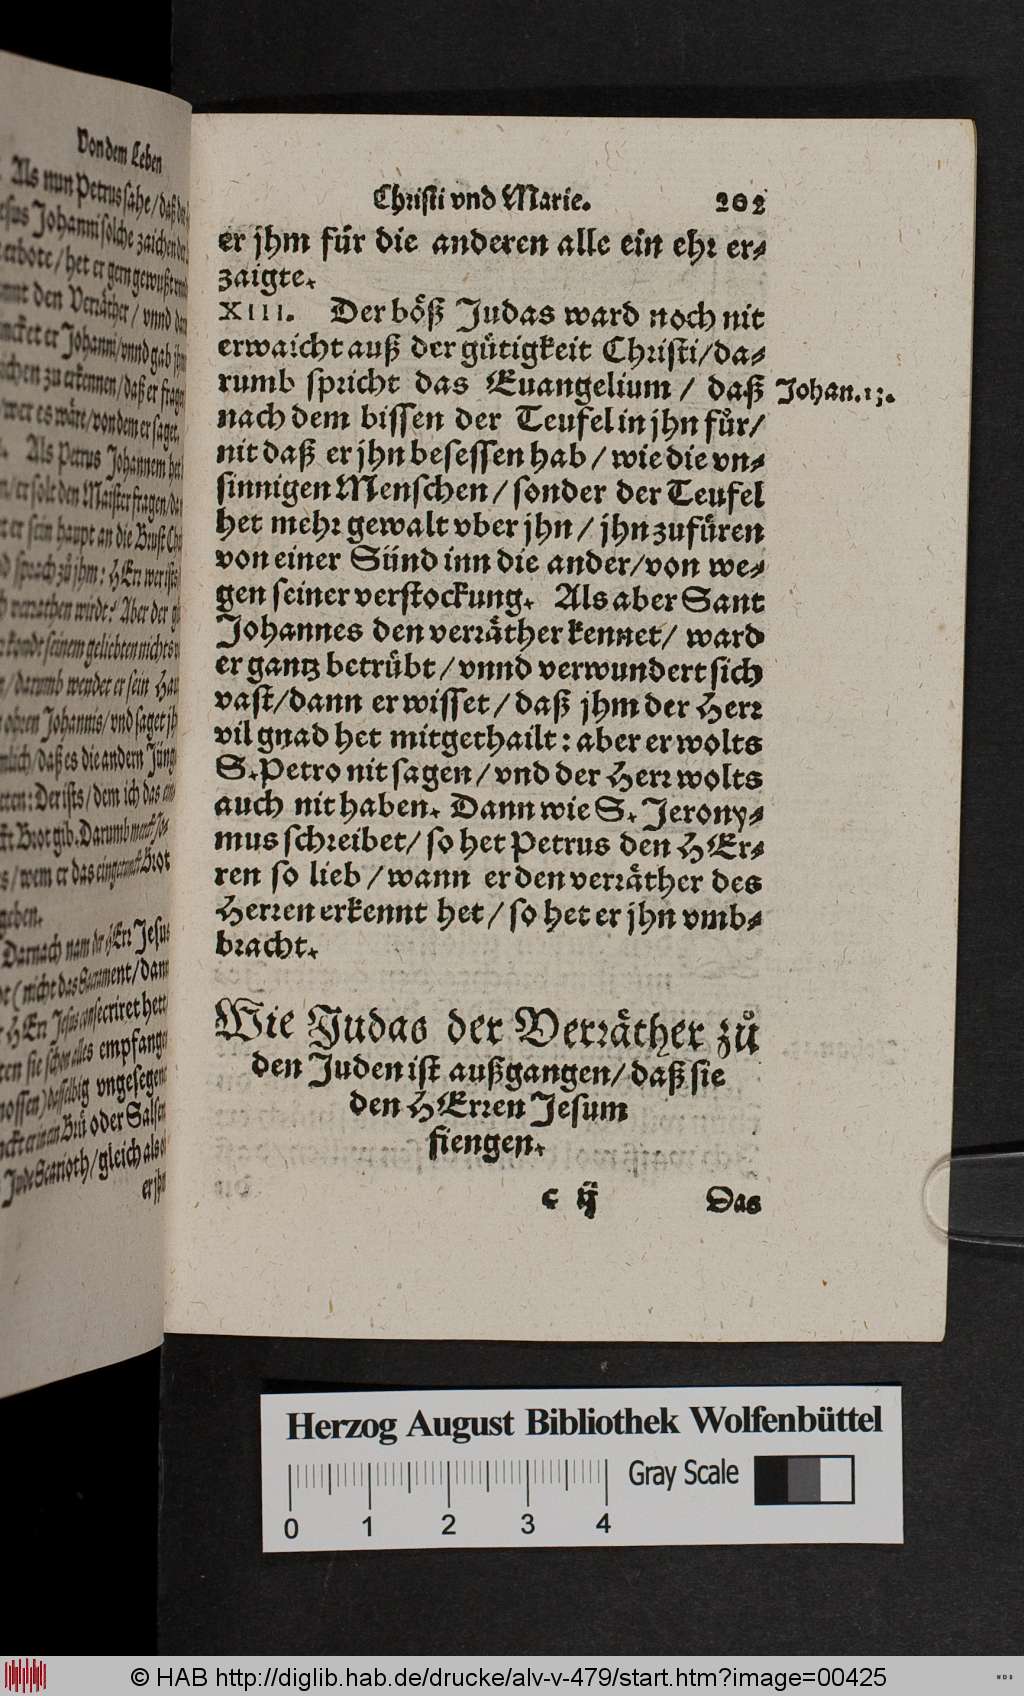 Von dem Leben
Als nun Petrus sahe / daß
Johanni solche zaichen
/ het er gern gewußt
den Verräther / vnnd
er Johanni / vnnd gab jhm
zu erkennen / daß er
wer es wäre / von dem er saget.
Als Petrus Johannem
er solt den Maister fragen /
er sein haupt an die Brust
sprach zů jhm: HErr wer ists
verrathen wirdt? Aber der
kondt seinem geliebten nichts
/ darumb wendet er sein
ohren Johannis / vnd saget
/ daß es die andern
: Der ists / dem ich das
Brot gib. Darumb merckt
/ wem er das eingetunckt Brot
geben.
Darnach nam der HErr Jesus
(nicht das Sacrament / dann
HErr Jesus consecriret hett
sie schon alles empfangen
) dasselbig vngesegnet
er in ain Brü oder
Jude Scarioth / gleich als
er jhm
Christi vnd Marie. 202
er jhm für die anderen alle ein ehr er-
zaigte.
XIII. Der böß Judas ward noch nit
erwaicht auß der gütigkeit Christi / da-
rumb spricht das Euangelium / daß
Johan. 13.
nach dem bissen der Teufel in jhn fůr /
nit daß er jhn besessen hab / wie die vn-
sinnigen Menschen / sonder der Teufel
het mehr gewalt vber jhn / jhn zufüren
von einer Sünd inn die ander / von we-
gen seiner verstockung. Als aber Sant
Johannes den verräther kennet / ward
er gantz betrübt / vnnd verwundert sich
vast / dann er wisset / daß jhm der Herr
vil gnad het mitgethailt: aber er wolts
S. Petro nit sagen / vnd der Herr wolts
auch nit haben. Dann wie S. Jerony-
mus schreibet / so het Petrus den HEr-
ren so lieb / wann er den verräther des
Herren erkennt het / so het er jhn vmb-
bracht.
Wie Judas der Verräther zů
den Juden ist außgangen / daß sie
den HErren Jesum
fiengen.
c ij Das
Herzog August Bibliothek Wolfenbüttel
Gray Scale
0 1 2 3 4
© HAB http://diglib.hab.de/drucke/alv-v-479/start.htm?image=00425